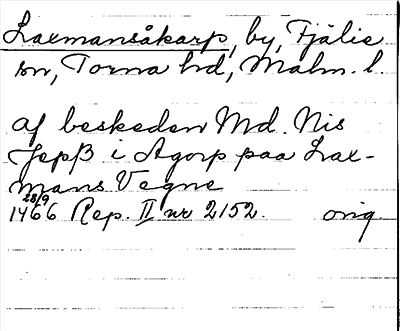 Laxmansåkarp, by, Fjälie
sn, Torna hd, Malm. l.
af beskeden Md. Nis
Jepß i Agorp paa Lax-
mans Vegne
28/9
1466 Rep. II nr 2152. orig